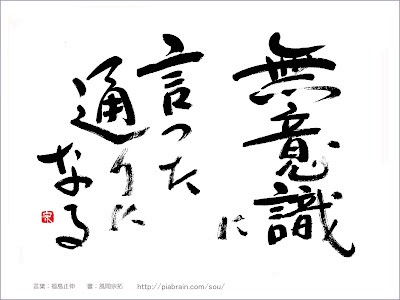 無意識に
言った
通りに
なる
宗
言葉：福島正伸　書：風岡宗拓　http://piabrain.com/sou/